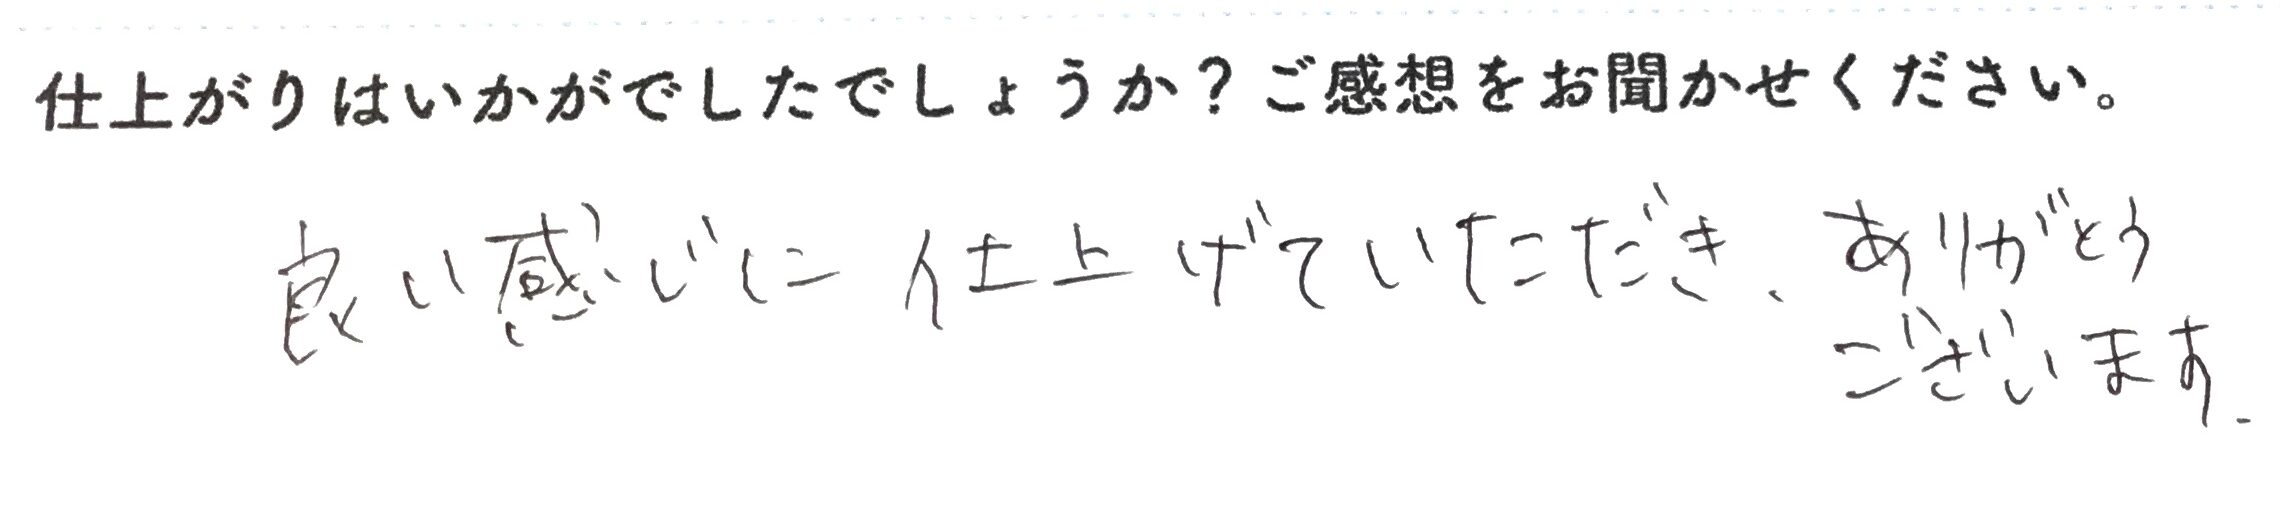 仕上がりはいかがでしたでしょうか？ご感想をお聞かせください。
良い感じに仕上げていただき、ありがとう
ございます.